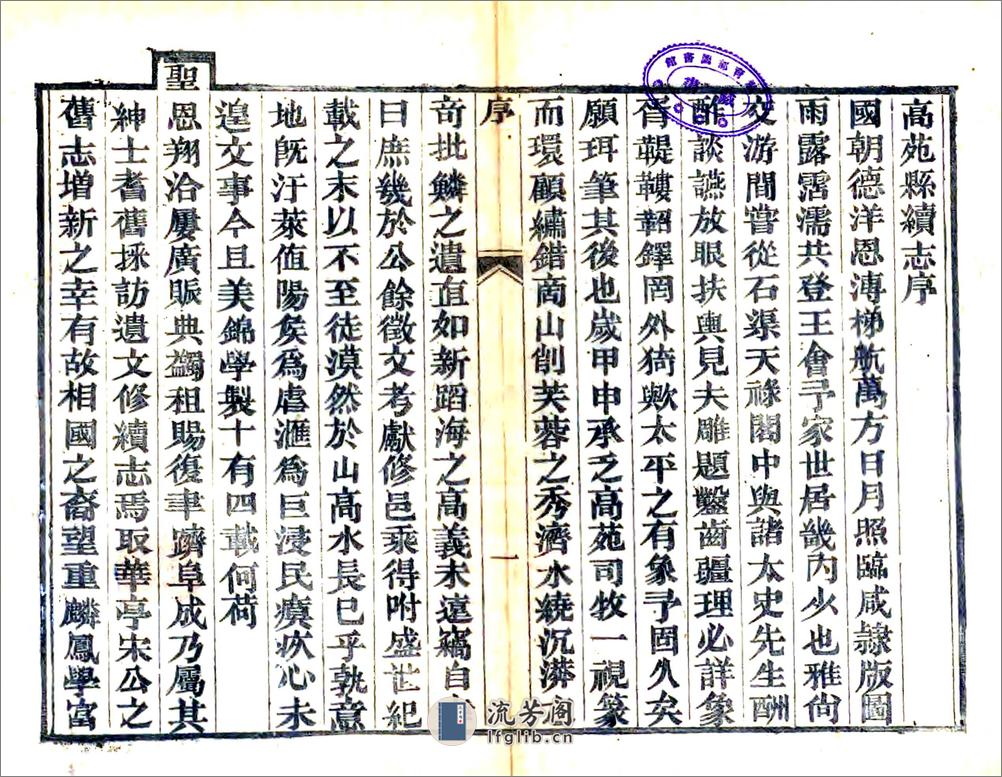 高苑縣續志序
國朝德洋恩溥梯航萬方日月照臨咸隸版圖
雨露霑濡共登王會予家世居畿內少也雅尚
交游間嘗從石渠天祿閣中與諸太史先生酬
酢談讌放眼扶輿見夫雕題鑿齒疆理必詳象
胥鞮鞻韜鐸罔外猗歟太平之有象予固久矣
願珥筆其後也歲甲申承乏高苑司牧一視篆
而環顧繡錯商山削芙蓉之秀濟水繞沉漭
序
一
奇批鱗之遺直如新蹈海之高義未遠竊自
曰庶幾於公餘徵文考獻修邑乘得附盛世紀
載之末以不至徒漠然於山高水長已乎孰意
地旣汙萊值陽矦爲虐滙爲巨浸民瘼疚心未
遑文事今且美錦學製十有四載何荷
聖
恩翔洽屢廣賑典蠲租賜復丰躋阜成乃屬其
紳士耆舊採訪遺文修續志焉取華亭宋公之
舊志增新之幸有故相國之裔望重麟鳳學富
流芳阁
lfglib.cn